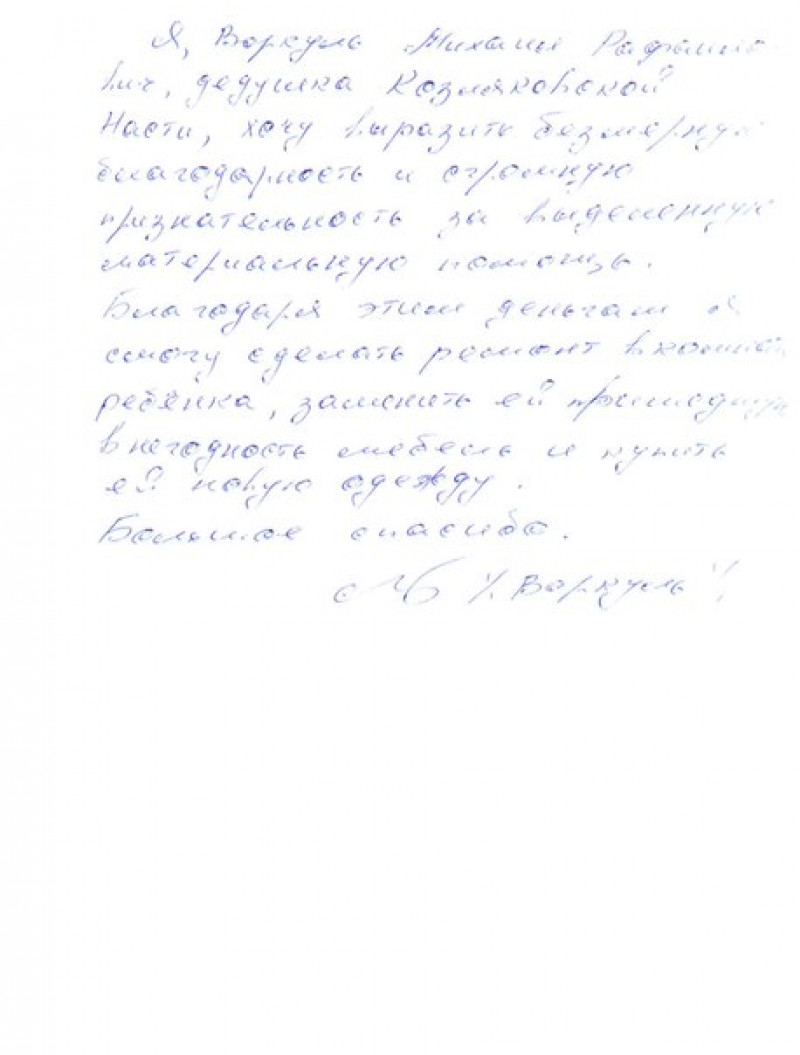 Я, Воркуль Михаил Рафаило-
вич, дедушка Козляковской
Насти, хочу выразить безмерную
благодарность и огромную
признательность за выделенную
материальную помощь.
Благодаря этим деньгам я
смогу сделать ремонт в комнате
ребёнка, заменить ей пришедшую
в негодность мебель и купить
ей новую одежду.
Большое спасибо.
/ Воркуль /